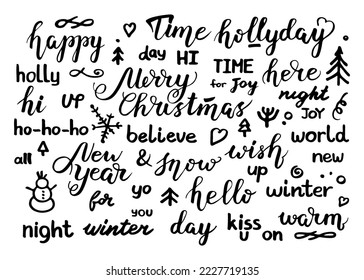 happy Time hollyday
day HI
holly Merry TIME for Joy here
hi up Christmas night JOY
ho-ho-ho believe world
all New Year & Snow wish up new
for yo hello winter
you
night winter day kiss u on warm
shutterstock
IMAGE ID: 2227719135
www.shutterstock.com